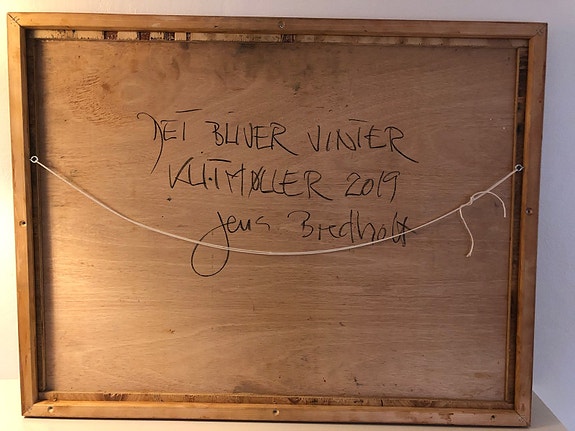 DET BLIVER VINTER
KLITMØLLER 2019
Jens Bredholt